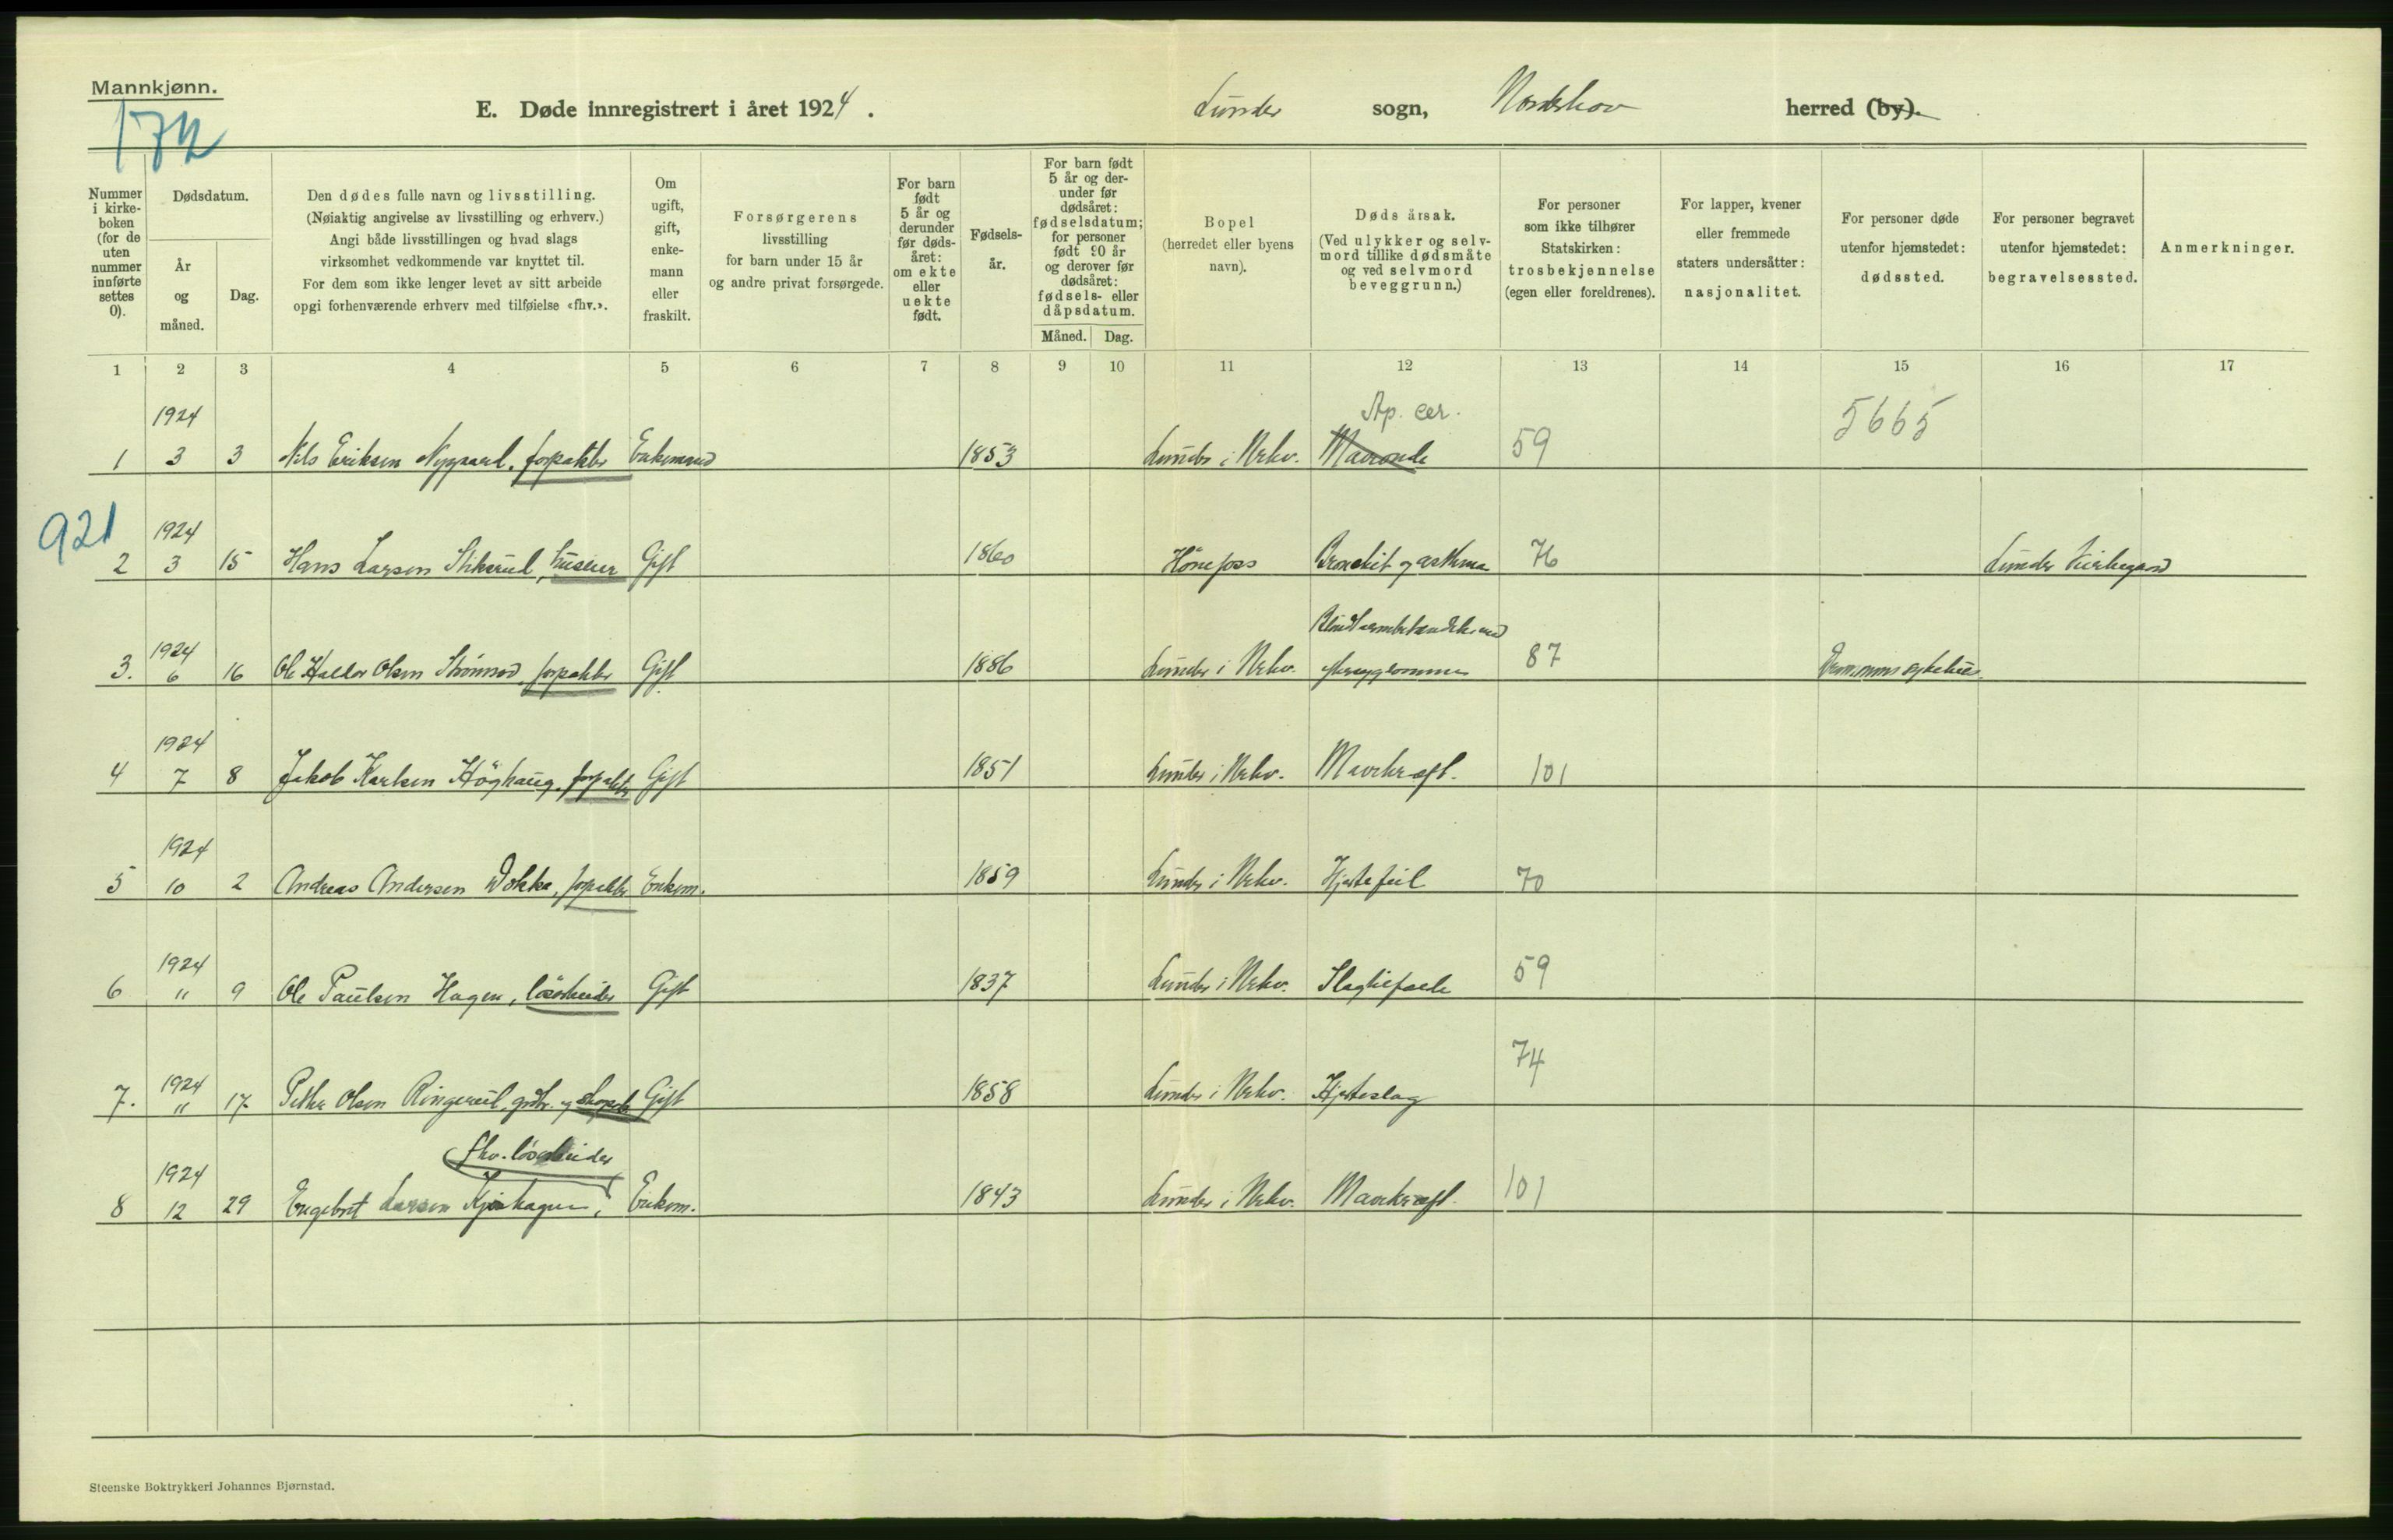 Mannkjønn.
172
E. Døde innregistrert i året 1924.
Lunder sogn, Norderhov herred (by).
Nummer i kirkeboken (for de uten nummer innførte settes 0).
Dødsdatum.
År og måned.
Dag.
Den dødes fulle navn og livsstilling.
(Nøiaktig angivelse av livsstilling og erhverv.)
Angi både livsstillingen og hvad slags
virksomhet vedkommende var knyttet til.
For dem som ikke lenger levet av sitt arbeide
opgi forhenværende erhverv med tilføielse «fhv.».
Om ugift, gift, enkemann eller fraskilt.
Forsørgerens
livsstilling
for barn under 15 år
og andre privat forsørgede.
For barn født 5 år og derunder før dødsåret: om ekte eller uekte født.
Fødselsår.
For barn født 5 år og derunder før dødsåret: fødselsdatum; for personer født 90 år og derover før dødsåret: fødsels- eller dåpsdatum.
Måned. Dag.
Bopel
(herredet eller byens navn).
Dødsårsak.
(Ved ulykker og selvmord tillike dødsmåte og ved selvmord beveggrunn.)
For personer som ikke tilhører Statskirken: trosbekjennelse (egen eller foreldrenes).
For lapper, kvener eller fremmede staters undersåtter: nasjonalitet.
For personer døde utenfor hjemstedet: dødssted.
For personer begravet utenfor hjemstedet: begravelsessted.
Anmerkninger.
1 2 3 4 5 6 7 8 9 10 11 12 13 14 15 16 17
1924 Ap. cer. 5665
1 3 3 Nils Eriksen Nygaard, forpakter Enkemand 1853 Lunder i Nrhv. 59
921 1924
2 3 15 Hans Larsen Stikerud, Gift 1860 Hönefoss Bronchit og asthma 76 Lunder Kirkegaard
1924
3. 6 16 Ole Halvor Olsen forpakter Gift 1886 Lunder i Nrhv. 87 sykehus
1924
4 7 8 Jakob Karlsen Höghaug, forpakter Gift 1851 Lunder i Nrhv. Mavekræft. 101
1924
5 10 2 Andreas Andersen Dokka, forpakter Enkem. 1859 Lunder i Nrhv. Hjertefeil 70
1924
6 " 9 Ole Paulsen Hagen, lösarbeider Gift 1837 Lunder i Nrhv. Slagtilfælde 59
1924 74
7. " 17 Petter Olsen Ringerud, grdbr. og Gift 1858 Lunder i Nrhv. Hjerteslag
fhv. lösarbeider
1924
8 12 29 Engebret Larsen Enkem. 1843 Lunder i Nrhv. Mavekræft. 101
Steenske Boktrykkeri Johannes Bjørnstad.